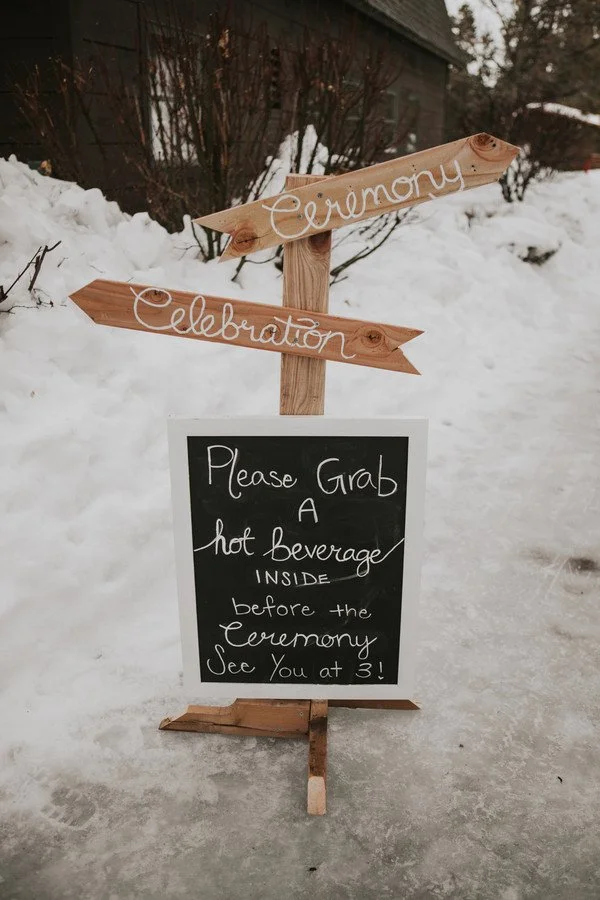 Ceremony
Celebration
Please Grab
A
hot beverage
INSIDE
before the
Ceremony
See You at 3!